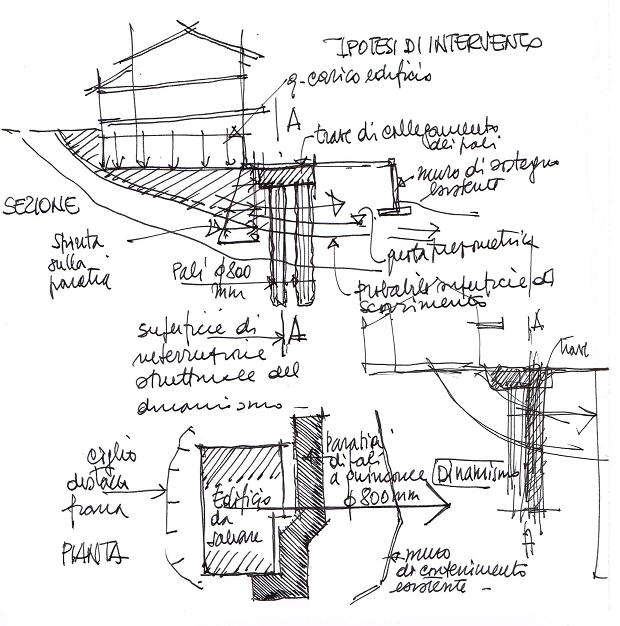 IPOTESI DI INTERVENTO
q=carico edificio
A
trave di collegamento
dei pali
muro di sostegno
esistente
SEZIONE
Spinta
sulla
paratia
Pali φ800
mm
quota piezometrica
probabile superficie di
scorrimento
A
superficie di
interruzione
strutturale del
dinamismo
A
trave
A
ciglio
distacco
frana
PIANTA
Edificio
da
salvare
Paratia
di pali
a quinconce
φ800mm
Dinamismo
muro
di contenimento
esistente